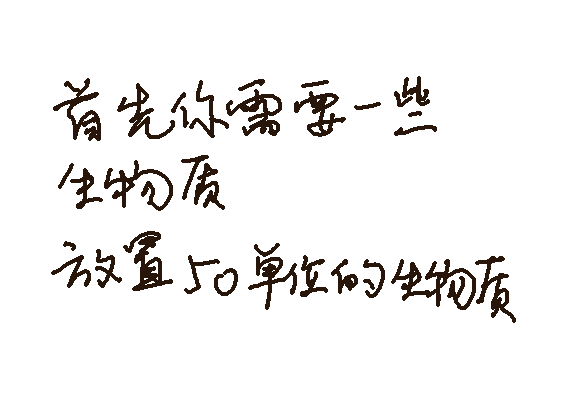 首先你需要一些
生物质
放置50单位的生物质